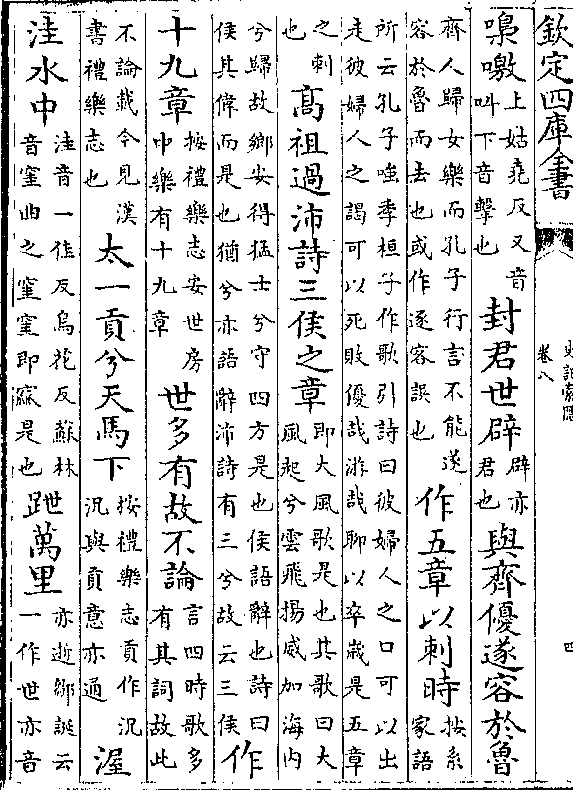 欽定四庫全書
史記索隱
卷八
四
嘄噭上姑堯反又音叫下音擊也封君世辟辟亦君也與齊優遂容於魯
齊人歸女樂而孔子行言不能遂容於魯而去也或作逐容誤也作五章以刺時按系家語
所云孔子嗤季桓子作歌引詩曰彼婦人之口可以出走彼婦人之謁可以死敗優哉游哉聊以卒歲是五章
之刺也髙祖過沛詩三侯之章即大風歌是也其歌曰大風起兮雲飛揚威加海内
兮歸故鄉安得猛士兮守四方是也侯語辭也詩曰侯其偉而是也猶兮亦語辭沛詩有三兮故云三侯作
十九章按禮樂志安世房中樂有十九章世多有故不論言四時歌多有其詞故此
不論載今見漢書禮樂志也太一貢兮天馬下按禮樂志貢作況況與貢意亦通渥
洼水中洼音一佳反烏花反蘇林音窐曲之窐窐即窳是也跇萬里亦逝鄒誕云一作世亦音